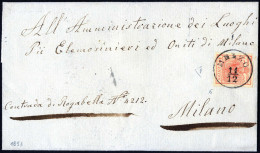 All' Amministrazione dei Luoghi
Pii Elemosinieri ed Uniti di Milano
11
12
Contrada di Rogabella N° 4212.
Milano